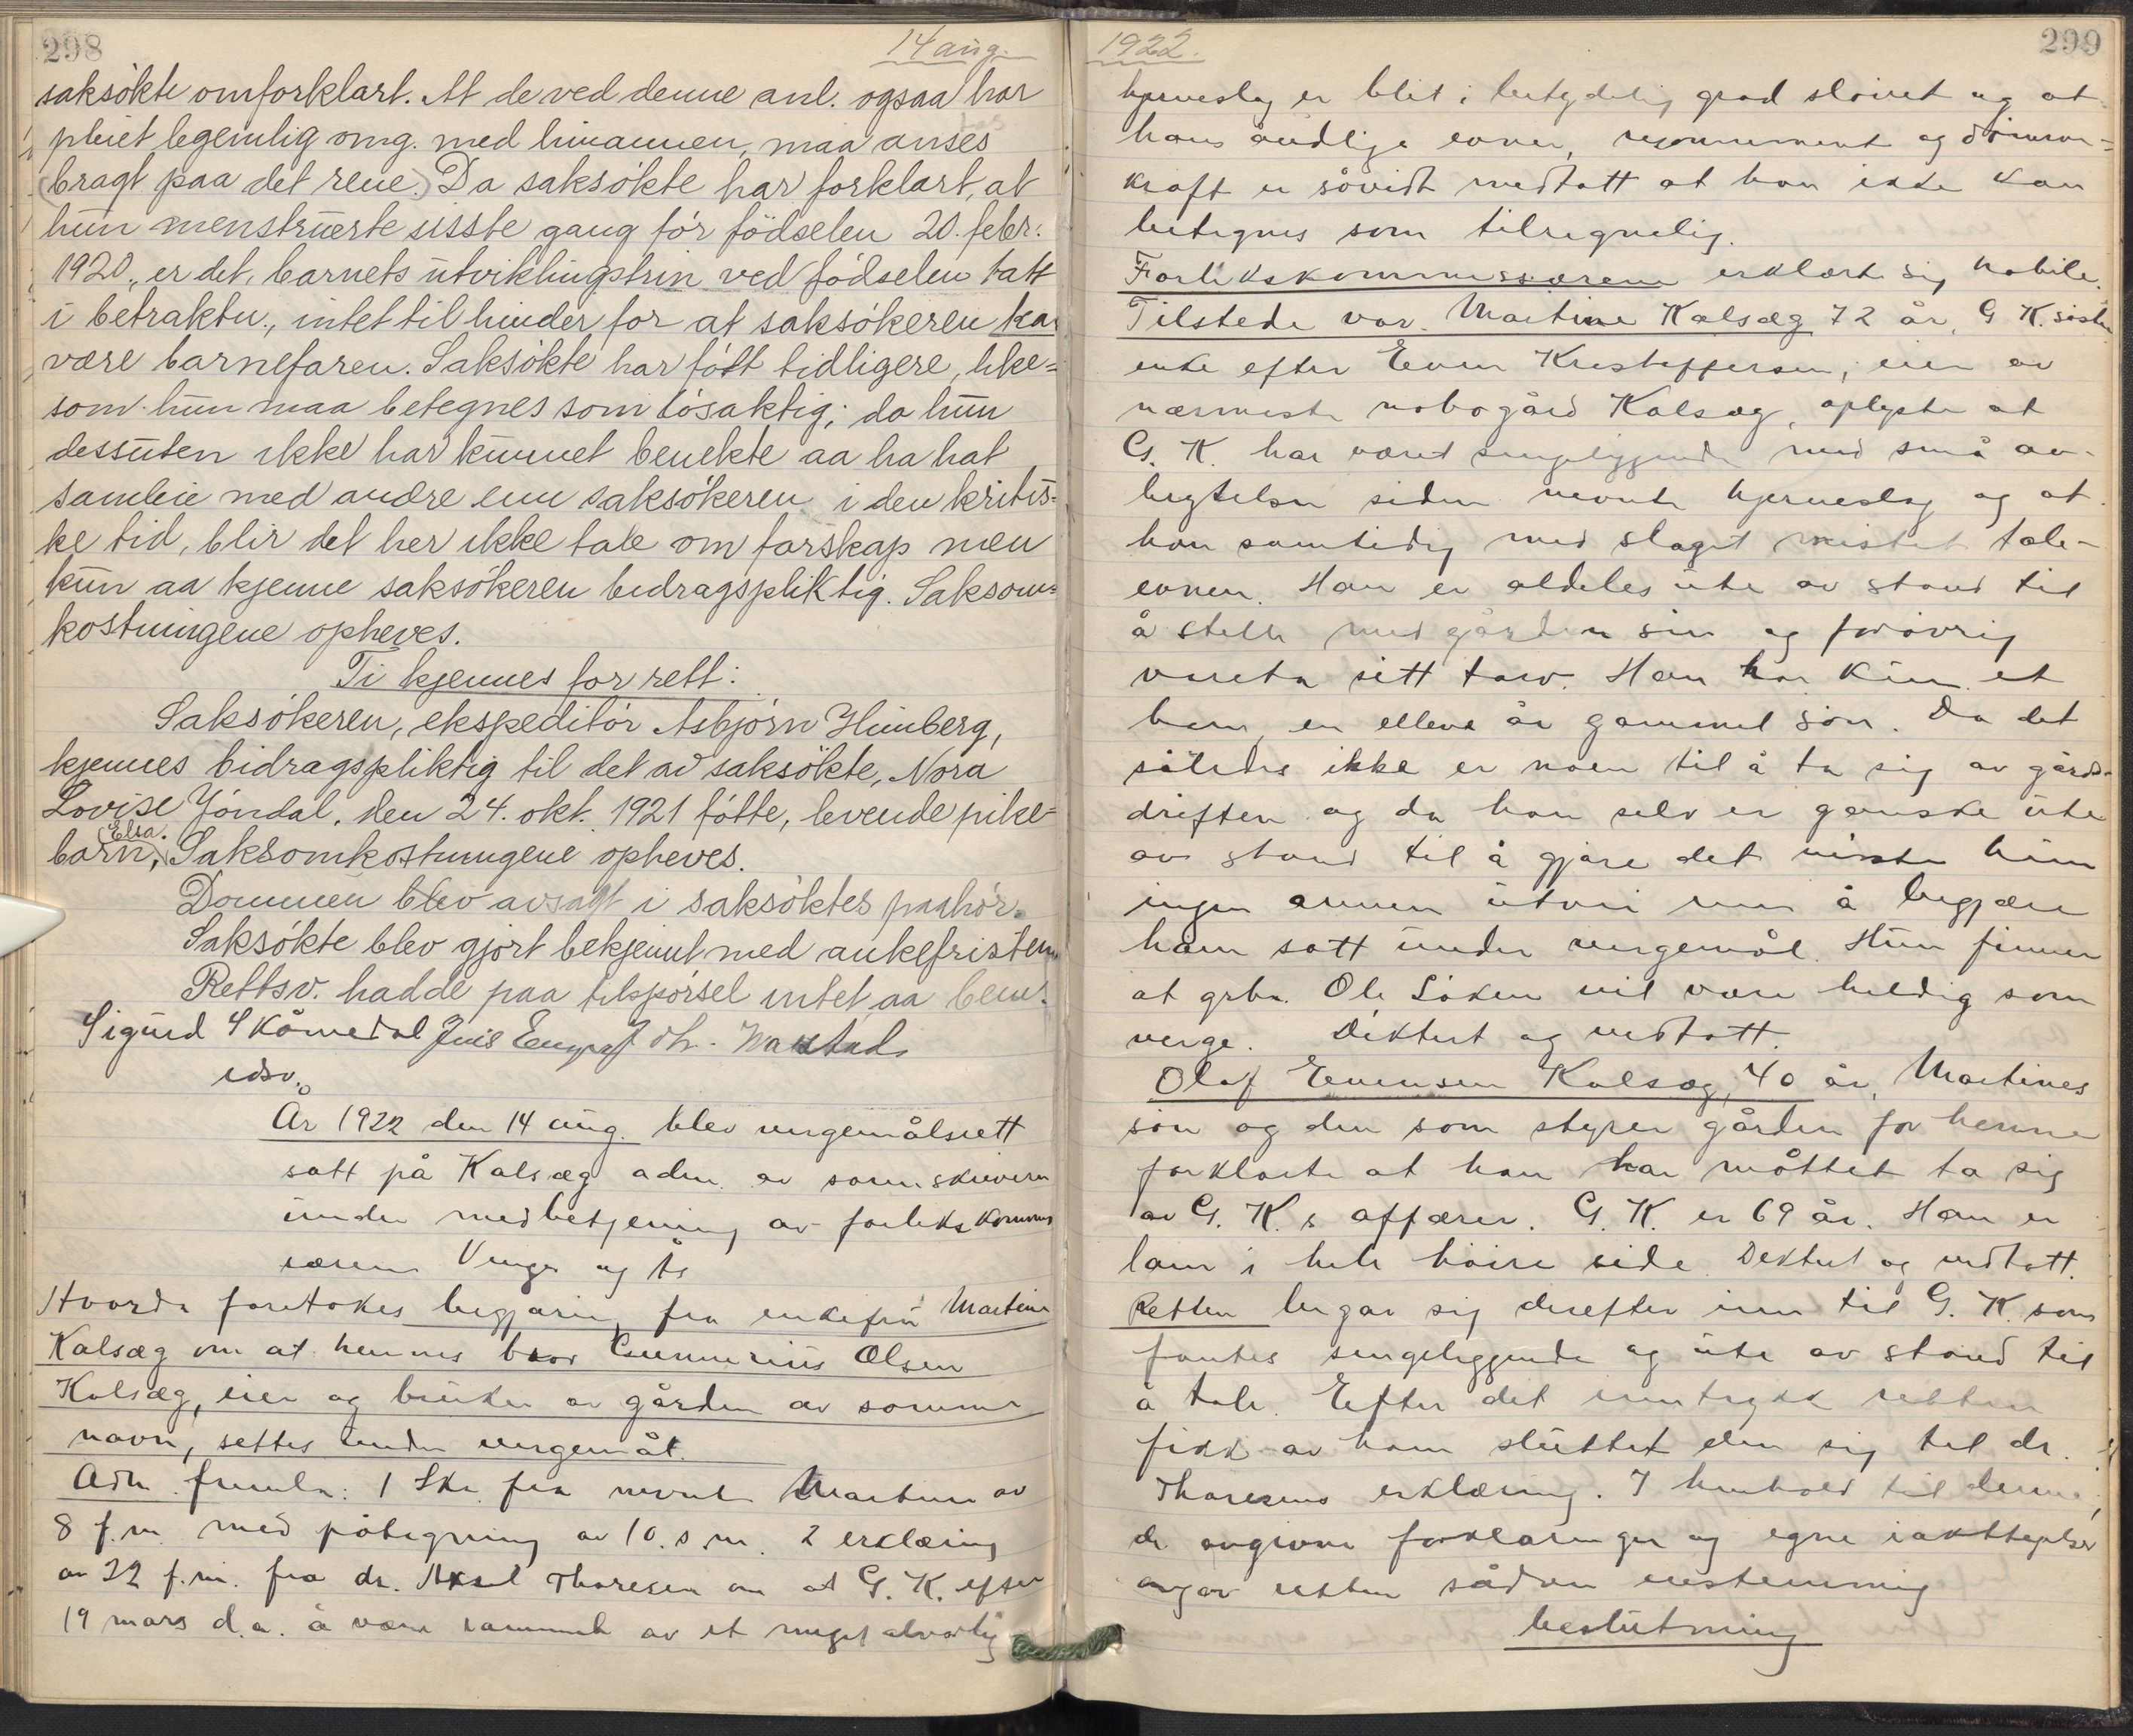 298
14 aug.
saksökte omforklart. At de ved denne anl. ogsaa har
pleiet legemlig omg. med hinannen, maa anses
(bragt paa det rene.) Da saksökte har forklart, at
hun menstruerte sisste gang för födselen 20. febr.
1920., er det, barnets utviklingstrin ved födselen tatt
i betraktn., intet til hinder for at saksökeren kan
være barnefaren. Saksökte har fött tidligere, like=
som hun maa betegnes som lösaktig; da hun
dessuten ikke har kunnet benekte aa ha hat
samleie med andre enn saksökeren i den kritis=
ke tid, blir det her ikke tale om farskap men
kun aa kjenne saksökeren bidragspliktig. Saksom=
kostningene opheves.
Ti kjennes for rett:
Saksökeren, ekspeditör Asbjörn Himberg,
kjennes bidragspliktig til det av saksökte, Nora
Lovise Jöndal, den 24. okt. 1921 fötte, levende pike=
barn, Elsa. Saksomkostningene opheves.
Dommen blev avsagt i saksöktes paahör.
Saksökte blev gjort bekjennt med ankefristen
Rettsv. hadde paa tilspörsel intet aa bem.
Sigurd Skåmedal Jens
edsv.
År 1922 den 14 aug. blev vergemålsrett
satt på Kalsæg adm. av sorenskriveren
under medbetjening av forlikskommis
særene Venger og Ås
Hvorda foretokes begjæring fra enkefru Martine
Kalsæg om at hennes bror Gunnerius Olsen
Kalsæg, eier og bruker av gården av samme
navn, settes under vergemål.
Adm. fremla: 1 Skr. fra nevnte Martine av
8 f.m. med påtegning av 10. s.m. 2 erklæring
av 22 f.m. fra dr. Aksel Thoresen om at G. K. efter
19 mars d.a. å være rammet av et meget alvorlig
1922.
299
hjerneslag er blit i betydelig grad slöiret og at
hans åndlige evner, resonnement og dömme=
kraft er såvidt medtatt at han ikke kan
betegnes som tilregnelig.
Forlikskommissærene erklærte sig habile.
Tilstede var Martine Kalsæg 72 år, G. K. söster
enke efter Even Kristoffersen, eier av
nærmeste nabogård Kalsæg, oplyste at
G. K. har været sengeliggende med små av-
brytelser siden nevnte hjerneslag og at
han samtidig med slaget mistet tale-
evnen. Han er aldeles ute av stand til
å stelle med gården sin og forövrig
vareta sitt tarv. Han har kun et
barn, en elleve år gammel sön. Da det
således ikke er noen til å ta sig av gårds-
driften og da han selv er ganske ute
av stand til å gjöre det visste hun
ingen annen utvei enn å begjære
ham satt under vergemål. Hun finner
at grbr. Ole Löken vil være heldig som
verge. Diktert og vedtatt.
Olaf Evensen Kalsæg, 40 år, Martines
sön og den som styrer gården for henne
forklarte at han har måttet ta sig
av G. K.s affærer. G. K. er 69 år. Han er
lam i hele höire side. Diktert og vedtatt.
Retten begav sig derefter inn til G. K. som
fantes sengeliggende og ute av stand til
å tale. Efter det inntrykk retten
fikk av ham sluttet den sig til dr.
Thoresens erklæring. I henhold til denne,
de avgivne forklaringer og egne iakttagelser
avgav retten sådan enstemmig
beslutning